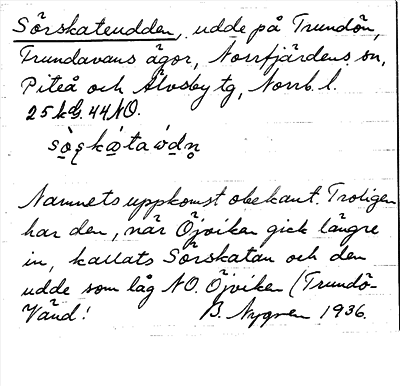 Sörskateudden, udde på Trundön,
Trundavans ägor, Norrfjärdens sn,
Piteå och Älvsby tg, Norrb. l.
25 kdb. 44 NO.
Namnets uppkomst obekant. Troligen
har den, när Öjviken gick längre
in, kallats Sörskatan och den
udde som låg NO. Öjviken (Trundö-
Vänd!
B. Nygren 1936.